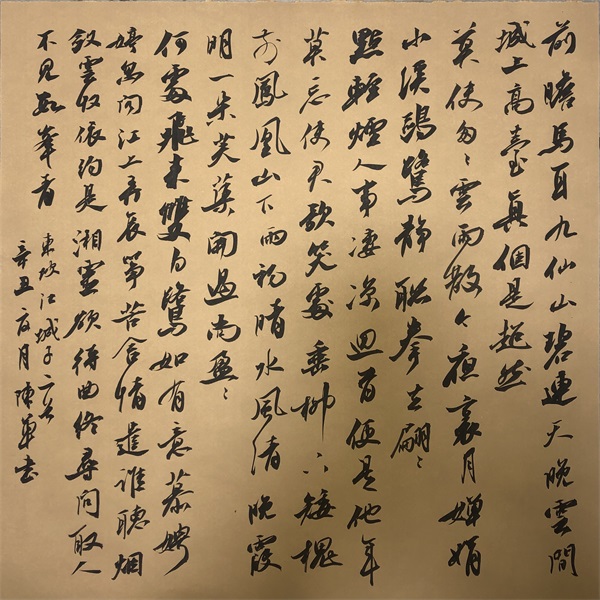 前瞻馬耳九仙山碧連天晚雲間
城上高臺真個是超然
莫使匆々雲雨散今夜裏月嬋娟
小溪鷗鷺靜聯拳去翩々
點輕煙人事凄涼迴首便是他年
莫忘使君歌笑處垂柳下矮槐
前鳳凰山下雨初晴水風清晚霞
明一朵芙蕖開過尚盈々
何處飛來雙白鷺如有意慕娉
婷忽聞江上弄哀箏苦含情遣誰聽烟
斂雲收依約是湘靈欲待曲終尋問取人
不見數峯青
東坡江城子二首
辛丑月陳书